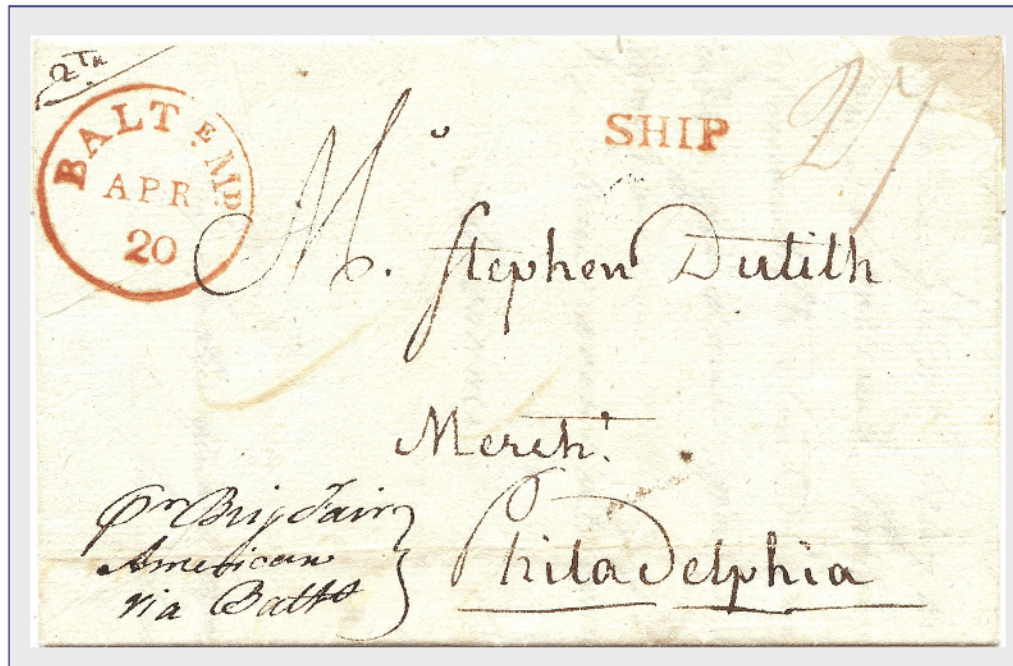 2Th
BALTE MD.
APR
20
SHIP
27
Mr. Stephen Dutilh
Mercht.
Philadelphia
pr Brig Fair
American
via Balto